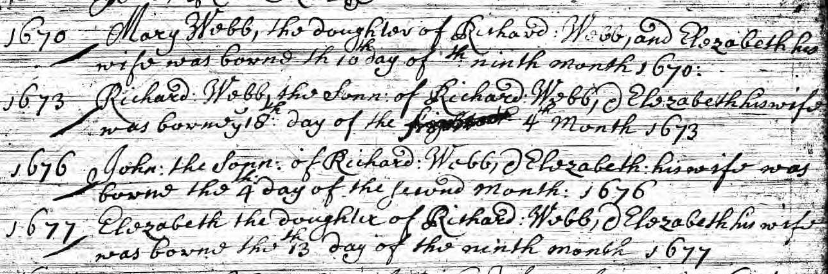 1670 Mary Webb, the doughter of Richard: Webb, and Elezabeth his
wife was borne th 10th day of th ninth month 1670:
1673 Richard: Webb, the Sonn: of Richard: Webb, & Elezabeth his wife
was borne y 18th day of the 4th Month 1673
1676 John: the Sonn: of Richard: Webb, & Elezabeth: his wife was
borne the 4th day of the second month: 1676
1677 Elezabeth the doughter of Richard: Webb, & Elezabeth his wife
was borne the 13th day of the ninth month 1677